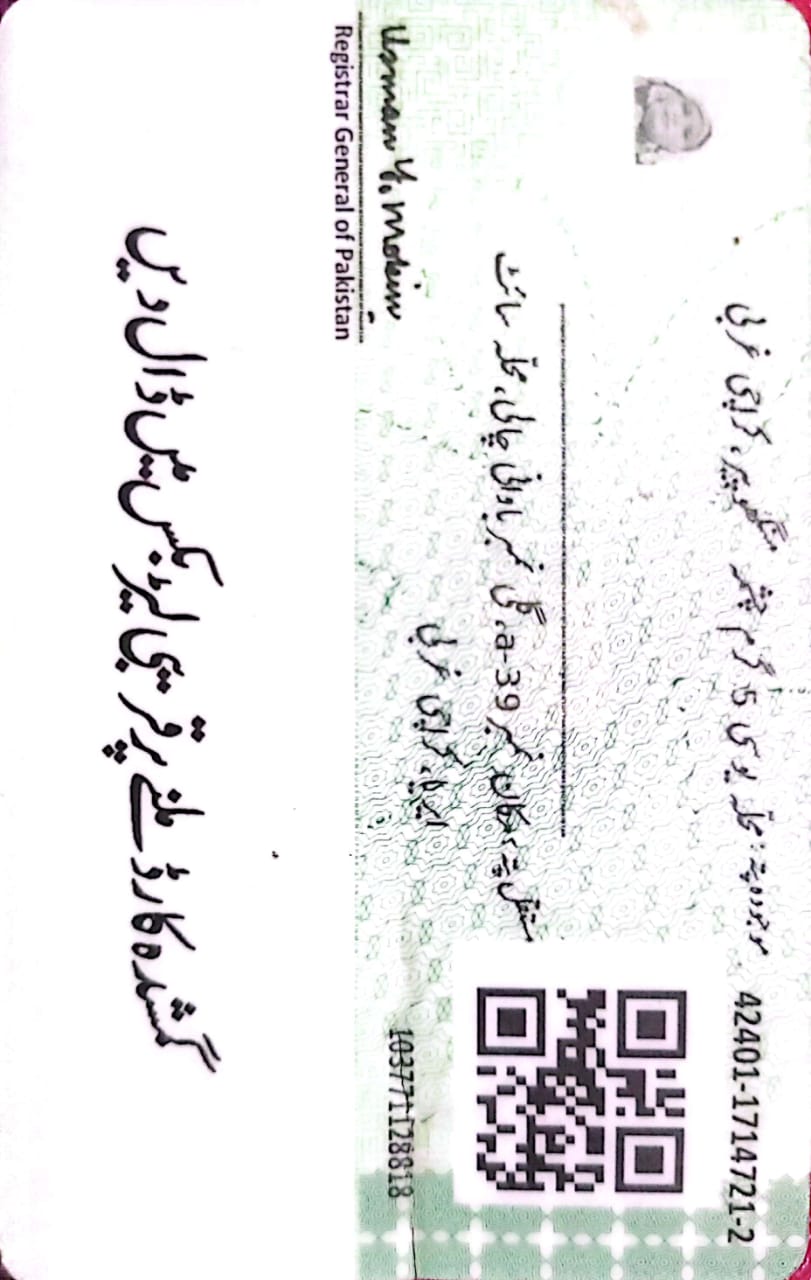 42401-1714721-2
موجودہ پتہ: محلہ یو سی 5 گرم چشمہ منگھوپیر، کراچی غربی
مستقل پتہ: مکان نمبر a-39، گلی نمبر باوانی چالی، محلہ سائٹ
ایریا، کراچی غربی
103771128818
Usman Y. Mobin
Registrar General of Pakistan
گمشدہ کارڈ ملنے پر قریبی لیٹر بکس میں ڈال دیں